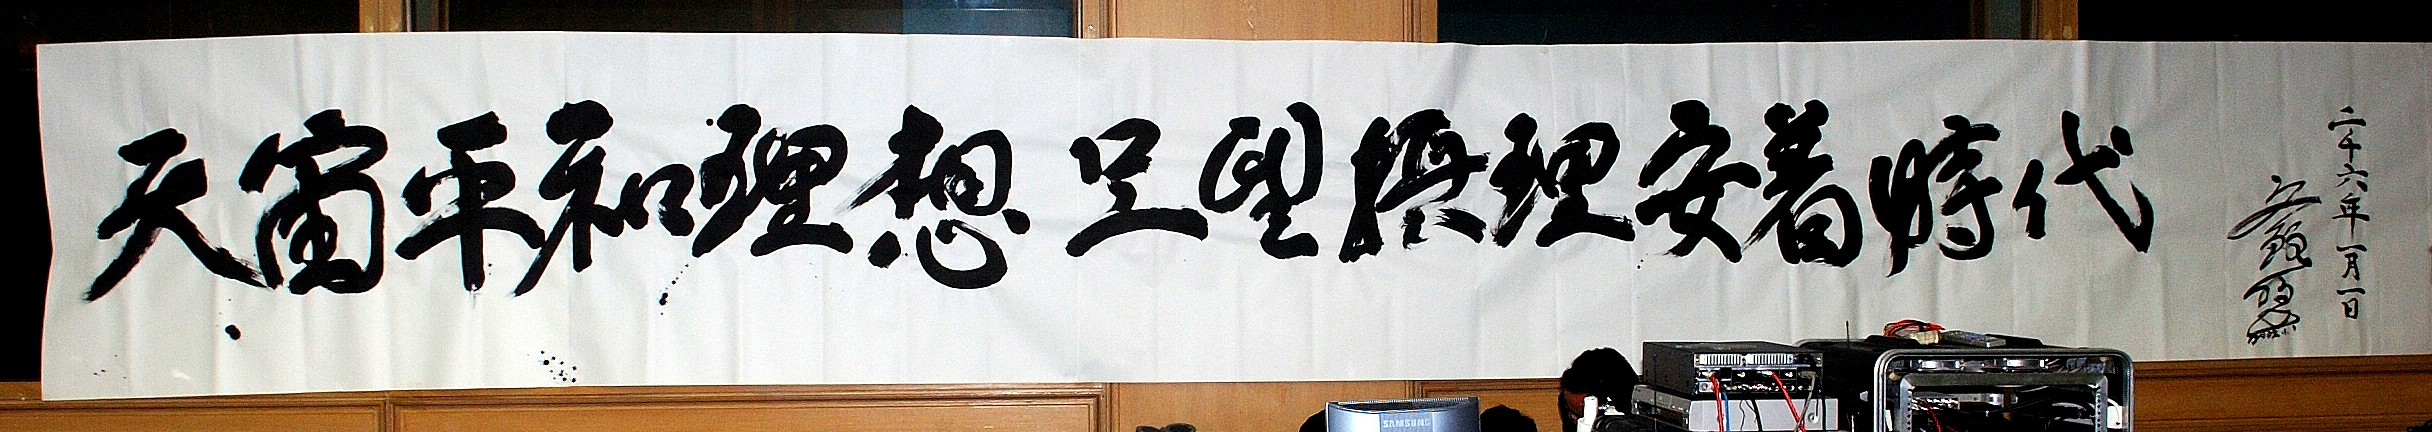 天宙平和理想 望攝理安着時代
二千六年一月一日
SAMSUNG